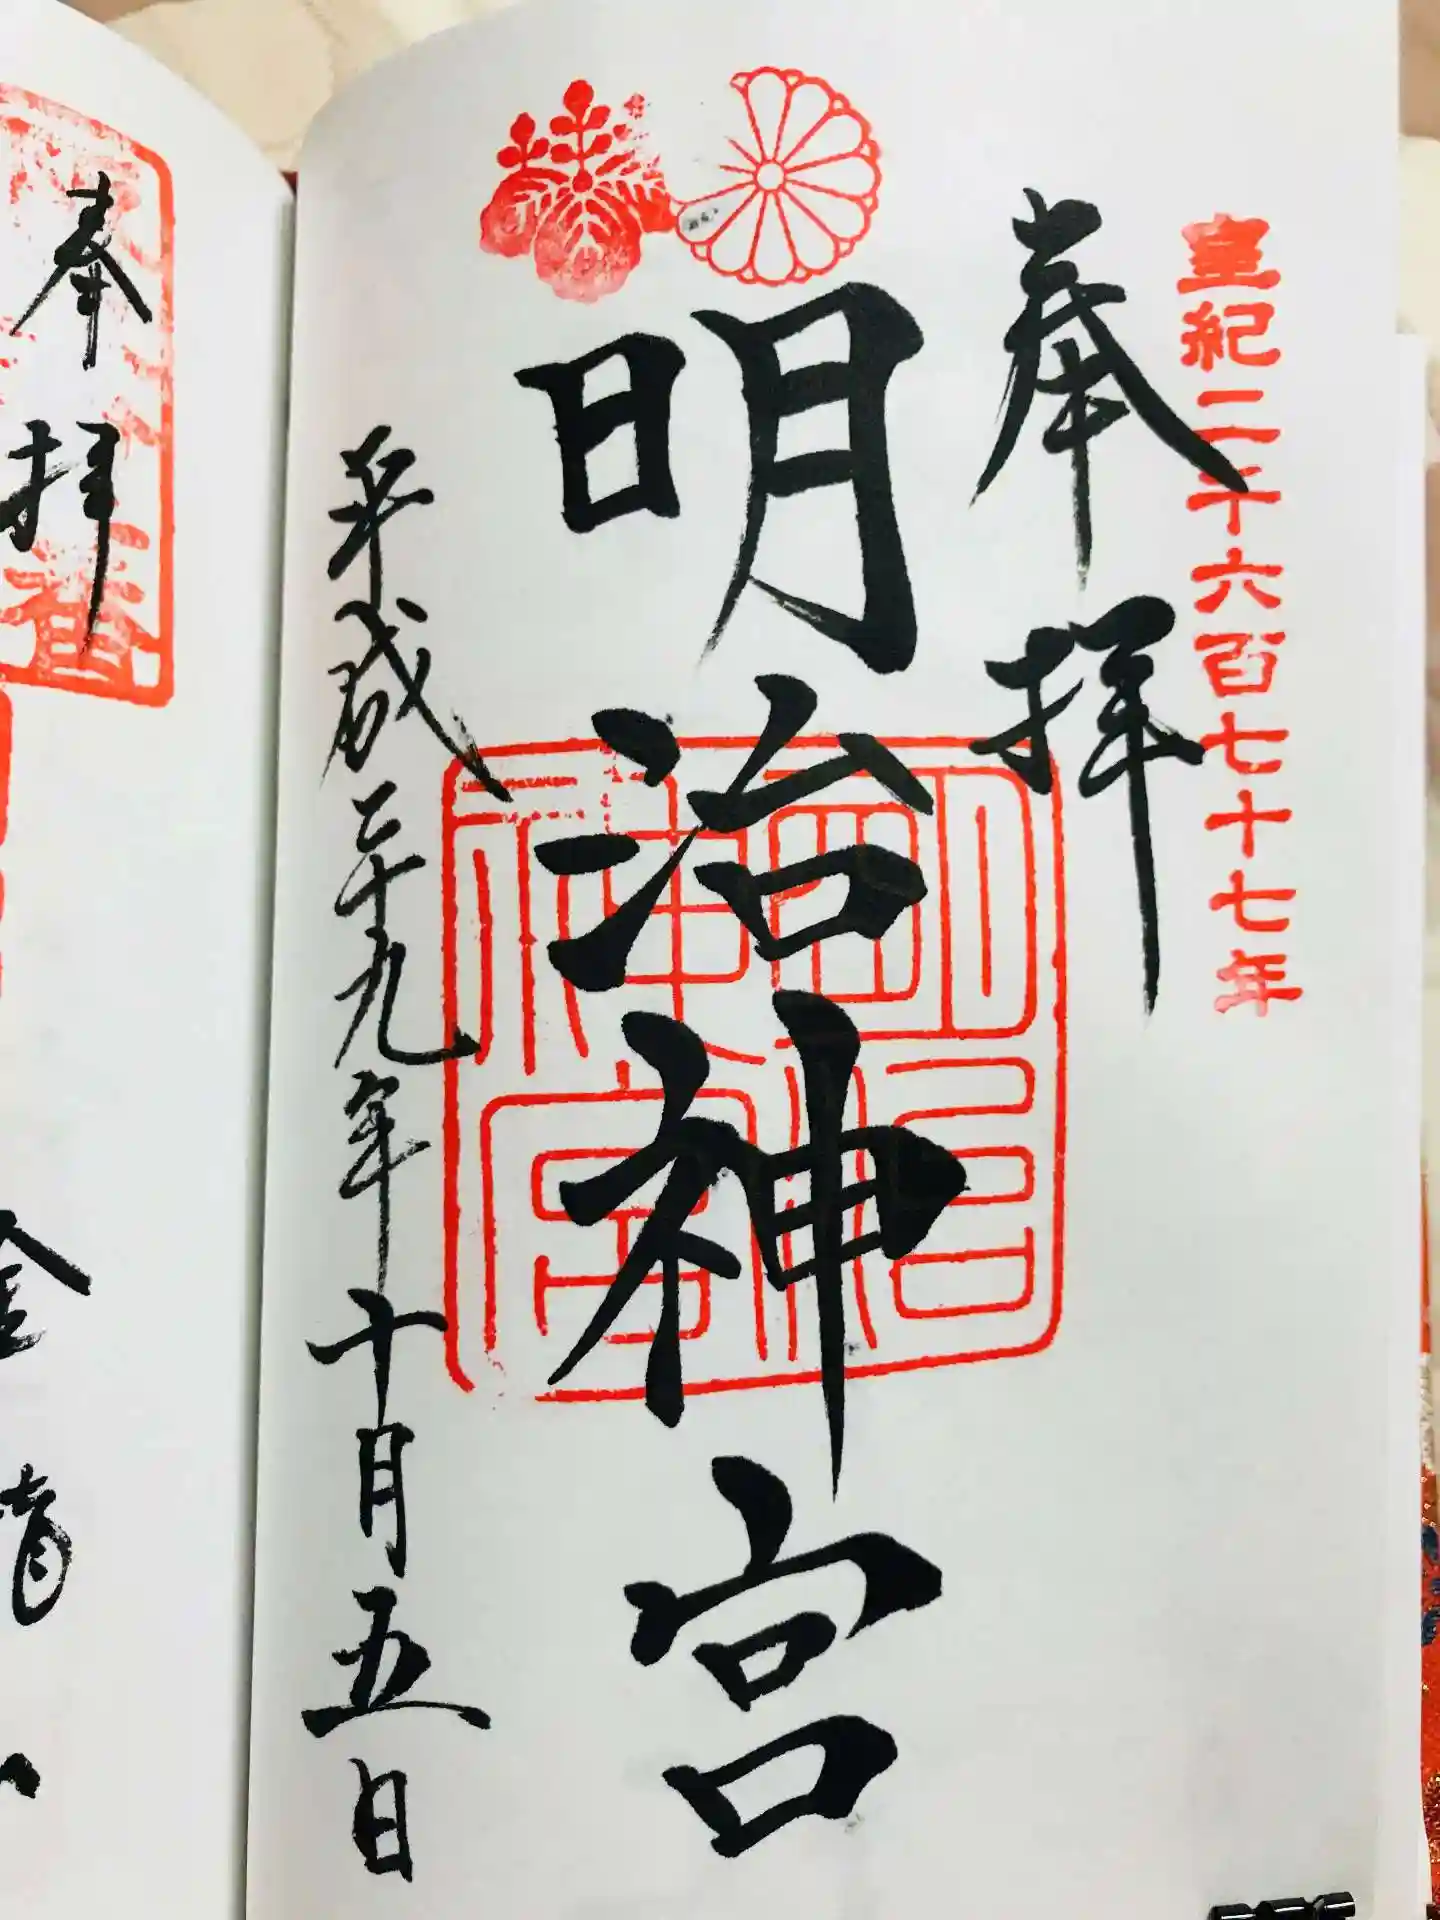 皇紀二千六百七十七年
奉拝
明治神宮
平成二十九年十月五日
奉拝
金龍